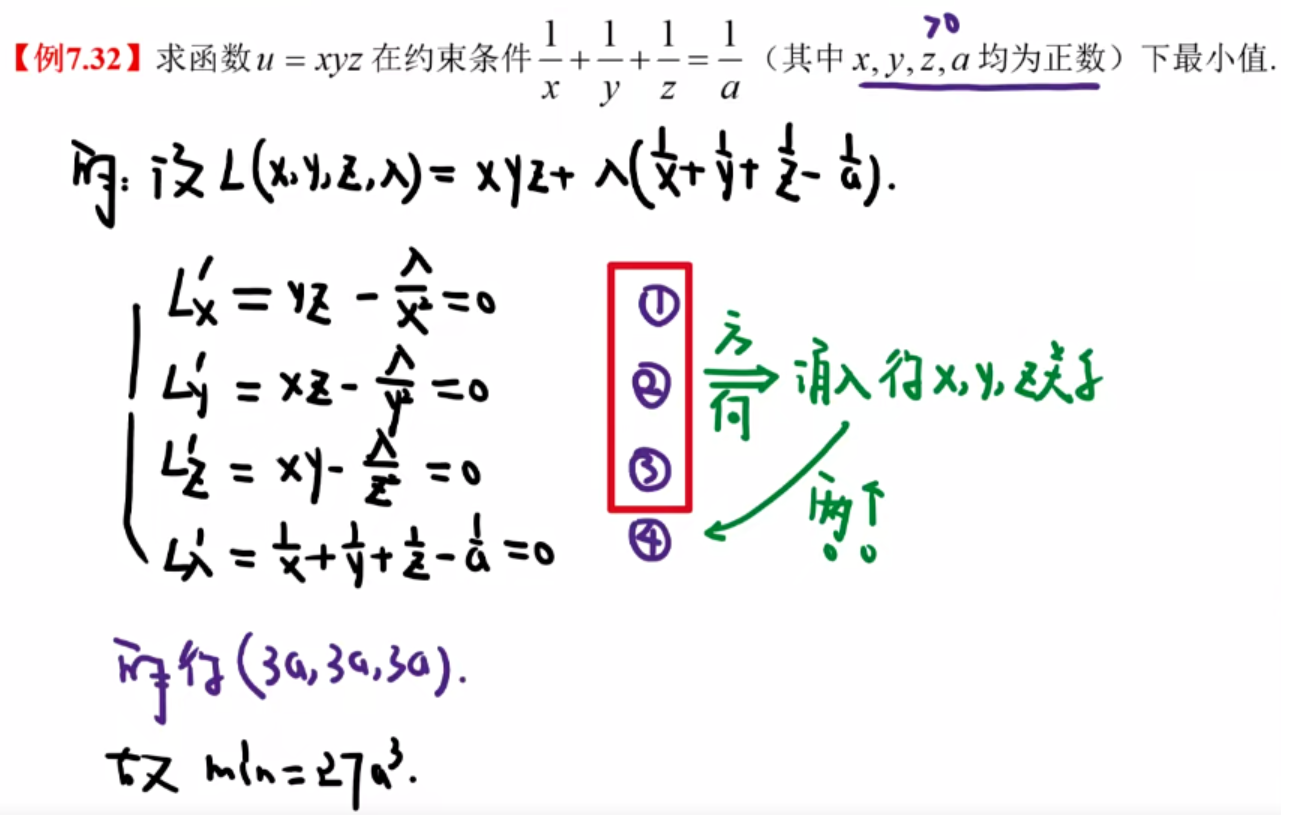 【例7.32】求函数 u = xyz 在约束条件 1/x + 1/y + 1/z = 1/a（其中 x, y, z, a 均为正数）下最小值.
>0
解: 设 L(x,y,z,λ) = xyz + λ(1/x + 1/y + 1/z - 1/a).
L'x = yz - λ/x² = 0 ①
L'y = xz - λ/y² = 0 ②
方向 消λ得x,y,z关系
L'z = xy - λ/z² = 0 ③
两个
L'λ = 1/x + 1/y + 1/z - 1/a = 0 ④
解得(3a,3a,3a).
故 min=27a³.